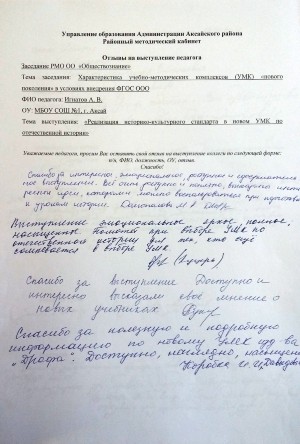 Управление образования Администрации Аксайского района
Районный методический кабинет
Отзывы на выступление педагога
Заседание РМО ОО «Обществознание»
Тема заседания: Характеристика учебно-методических комплексов (УМК) «нового
поколения» в условиях внедрения ФГОС ООО
ФИО педагога: Игнатов А. В.
ОУ: МБОУ СОШ №1, г. Аксай
Тема выступления: «Реализация историко-культурного стандарта в новом УМК по
отечественной истории»
Уважаемые педагоги, просим Вас оставить свой отзыв на выступление коллеги по следующей форме:
п/п, ФИО, должность, ОУ, отзыв.
Спасибо!
Спасибо за интересное, эмоциональное,
ное выступление. Всё очень и полезно,
идеи, которыми можно воспользоваться при подготовке
к урокам истории.
Выступление эмоциональное яркое, полное,
насыщенное. Поможет при выборе УМК по
отечественной истории для тех, кто ещё
сомневается в выборе УМК
Спасибо за выступление Доступно и
интересно высказали свое мнение о
новых учебниках
Спасибо за полезную и подробную
информацию по новому УМК изд-ва
„Дрофа“. Доступно, наглядно,